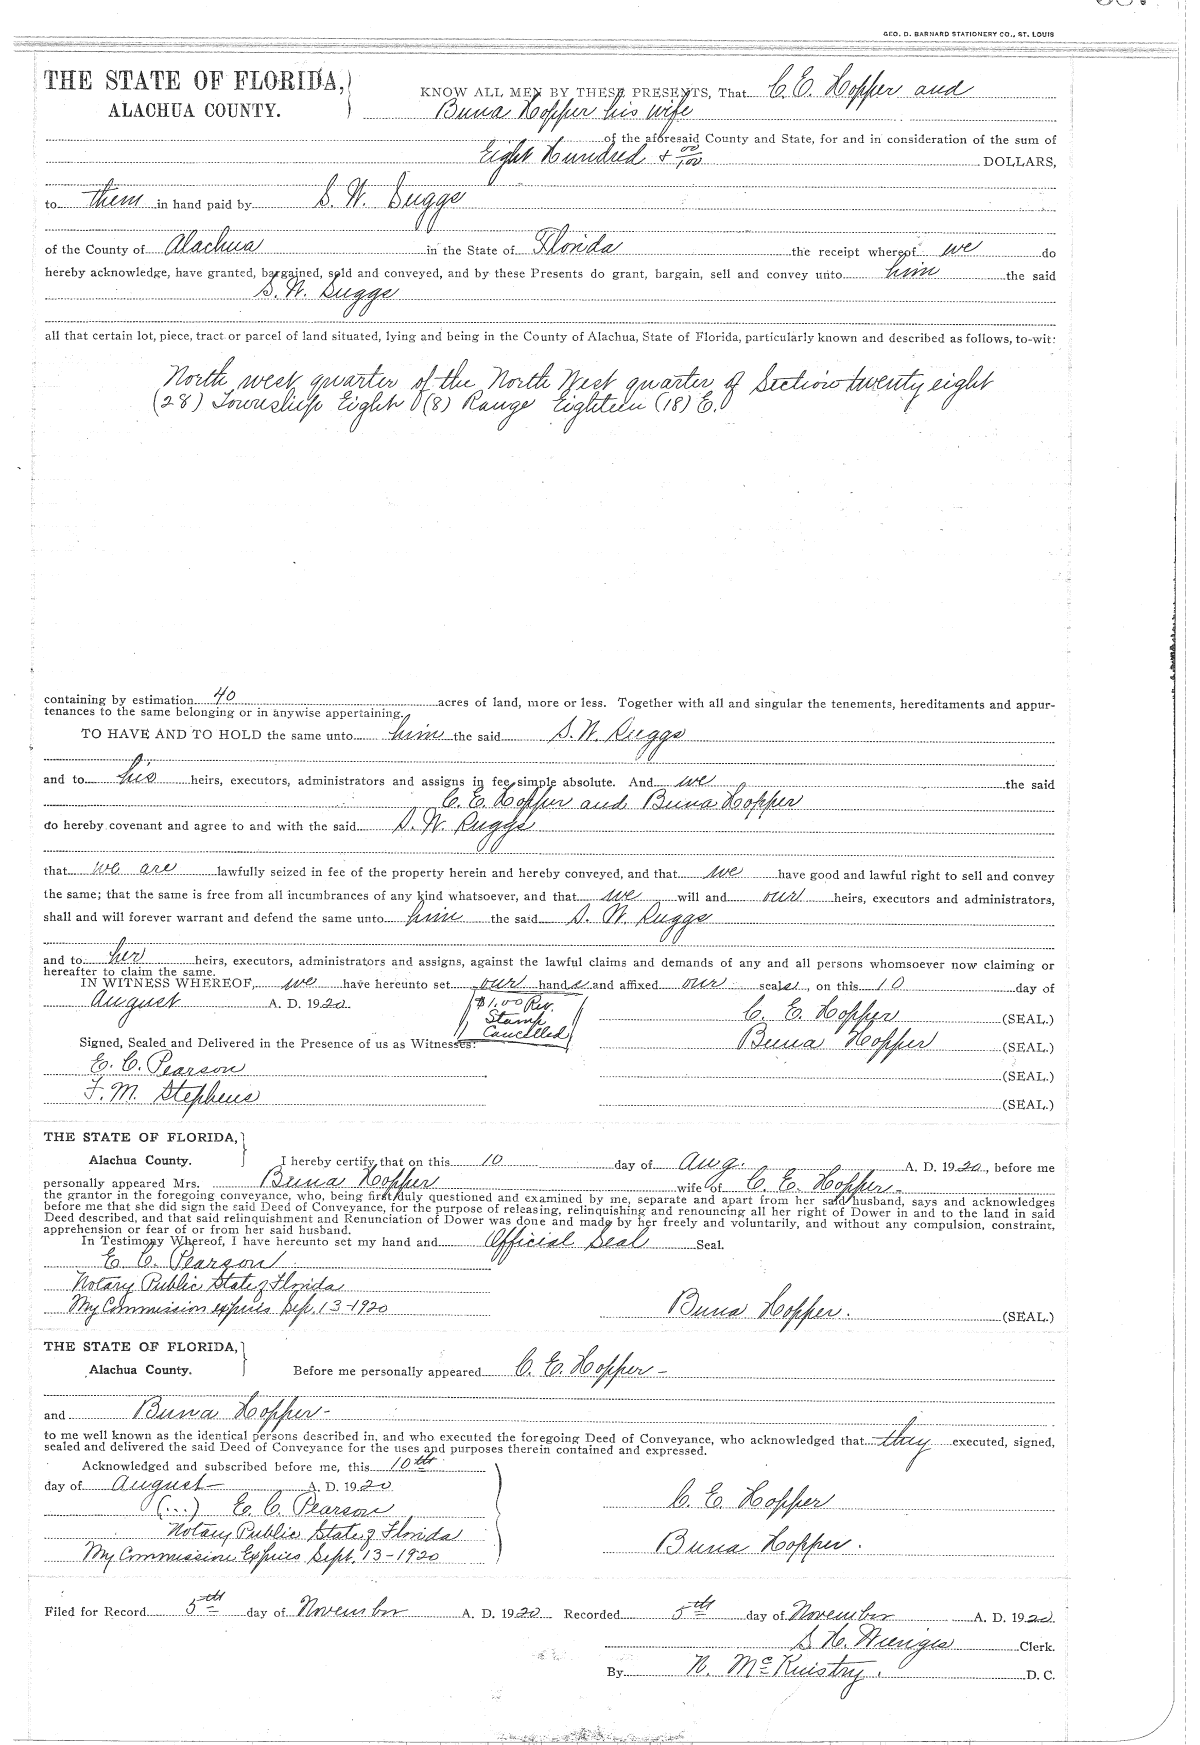 GEO. D. BARNARD STATIONERY CO., ST. LOUIS
THE STATE OF FLORIDA,
ALACHUA COUNTY.
KNOW ALL MEN BY THESE PRESENTS, That C. E. Hopper and
Buna Hopper his wife
of the aforesaid County and State, for and in consideration of the sum of
Eight Hundred + 00/100 DOLLARS,
to them in hand paid by S. W. Suggs
of the County of Alachua in the State of Florida the receipt whereof we do
hereby acknowledge, have granted, bargained, sold and conveyed, and by these Presents do grant, bargain, sell and convey unto him the said
S. W. Suggs
all that certain lot, piece, tract or parcel of land situated, lying and being in the County of Alachua, State of Florida, particularly known and described as follows, to-wit:
North west quarter of the North West quarter of Section twenty eight
(28) Township Eight (8) Range Eighteen (18) E.
containing by estimation 40 acres of land, more or less. Together with all and singular the tenements, hereditaments and appur-
tenances to the same belonging or in anywise appertaining.
TO HAVE AND TO HOLD the same unto him the said S. W. Suggs
and to his heirs, executors, administrators and assigns in fee simple absolute. And we the said
C. E. Hopper and Buna Hopper
do hereby covenant and agree to and with the said S. W. Suggs
that we are lawfully seized in fee of the property herein and hereby conveyed, and that we have good and lawful right to sell and convey
the same; that the same is free from all incumbrances of any kind whatsoever, and that we will and our heirs, executors and administrators,
shall and will forever warrant and defend the same unto him the said S. W. Suggs
and to her heirs, executors, administrators and assigns, against the lawful claims and demands of any and all persons whomsoever now claiming or
hereafter to claim the same.
IN WITNESS WHEREOF, we have hereunto set our hands and affixed our seals, on this 10 day of
August A. D. 1920
$1.00 Rev.
Stamp
Cancelled
C. E. Hopper (SEAL.)
Buna Hopper (SEAL.)
Signed, Sealed and Delivered in the Presence of us as Witnesses:
E. C. Pearson (SEAL.)
F. M. Stephens (SEAL.)
THE STATE OF FLORIDA,
Alachua County.
I hereby certify that on this 10 day of Aug. A. D. 1920, before me
personally appeared Mrs. Buna Hopper wife of C. E. Hopper-
the grantor in the foregoing conveyance, who, being first duly questioned and examined by me, separate and apart from her said husband, says and acknowledges
before me that she did sign the said Deed of Conveyance, for the purpose of releasing, relinquishing and renouncing all her right of Dower in and to the land in said
Deed described, and that said relinquishment and Renunciation of Dower was done and made by her freely and voluntarily, and without any compulsion, constraint,
apprehension or fear of or from her said husband.
In Testimony Whereof, I have hereunto set my hand and Official Seal Seal.
E. C. Pearson
Notary Public State of Florida
My Commission expires Sep. 13-1920
Buna Hopper. (SEAL.)
THE STATE OF FLORIDA,
Alachua County.
Before me personally appeared C. E. Hopper-
and Buna Hopper-
to me well known as the identical persons described in, and who executed the foregoing Deed of Conveyance, who acknowledged that they executed, signed,
sealed and delivered the said Deed of Conveyance for the uses and purposes therein contained and expressed.
Acknowledged and subscribed before me, this 10th
day of August- A. D. 1920
(...) E. C. Pearson
Notary Public State of Florida
My Commission Expires Sept. 13-1920
C. E. Hopper
Buna Hopper.
Filed for Record 5th day of November A. D. 1920 Recorded 5th day of November A. D. 1920
S. H. Wienges Clerk.
By N. McKinstry. D. C.